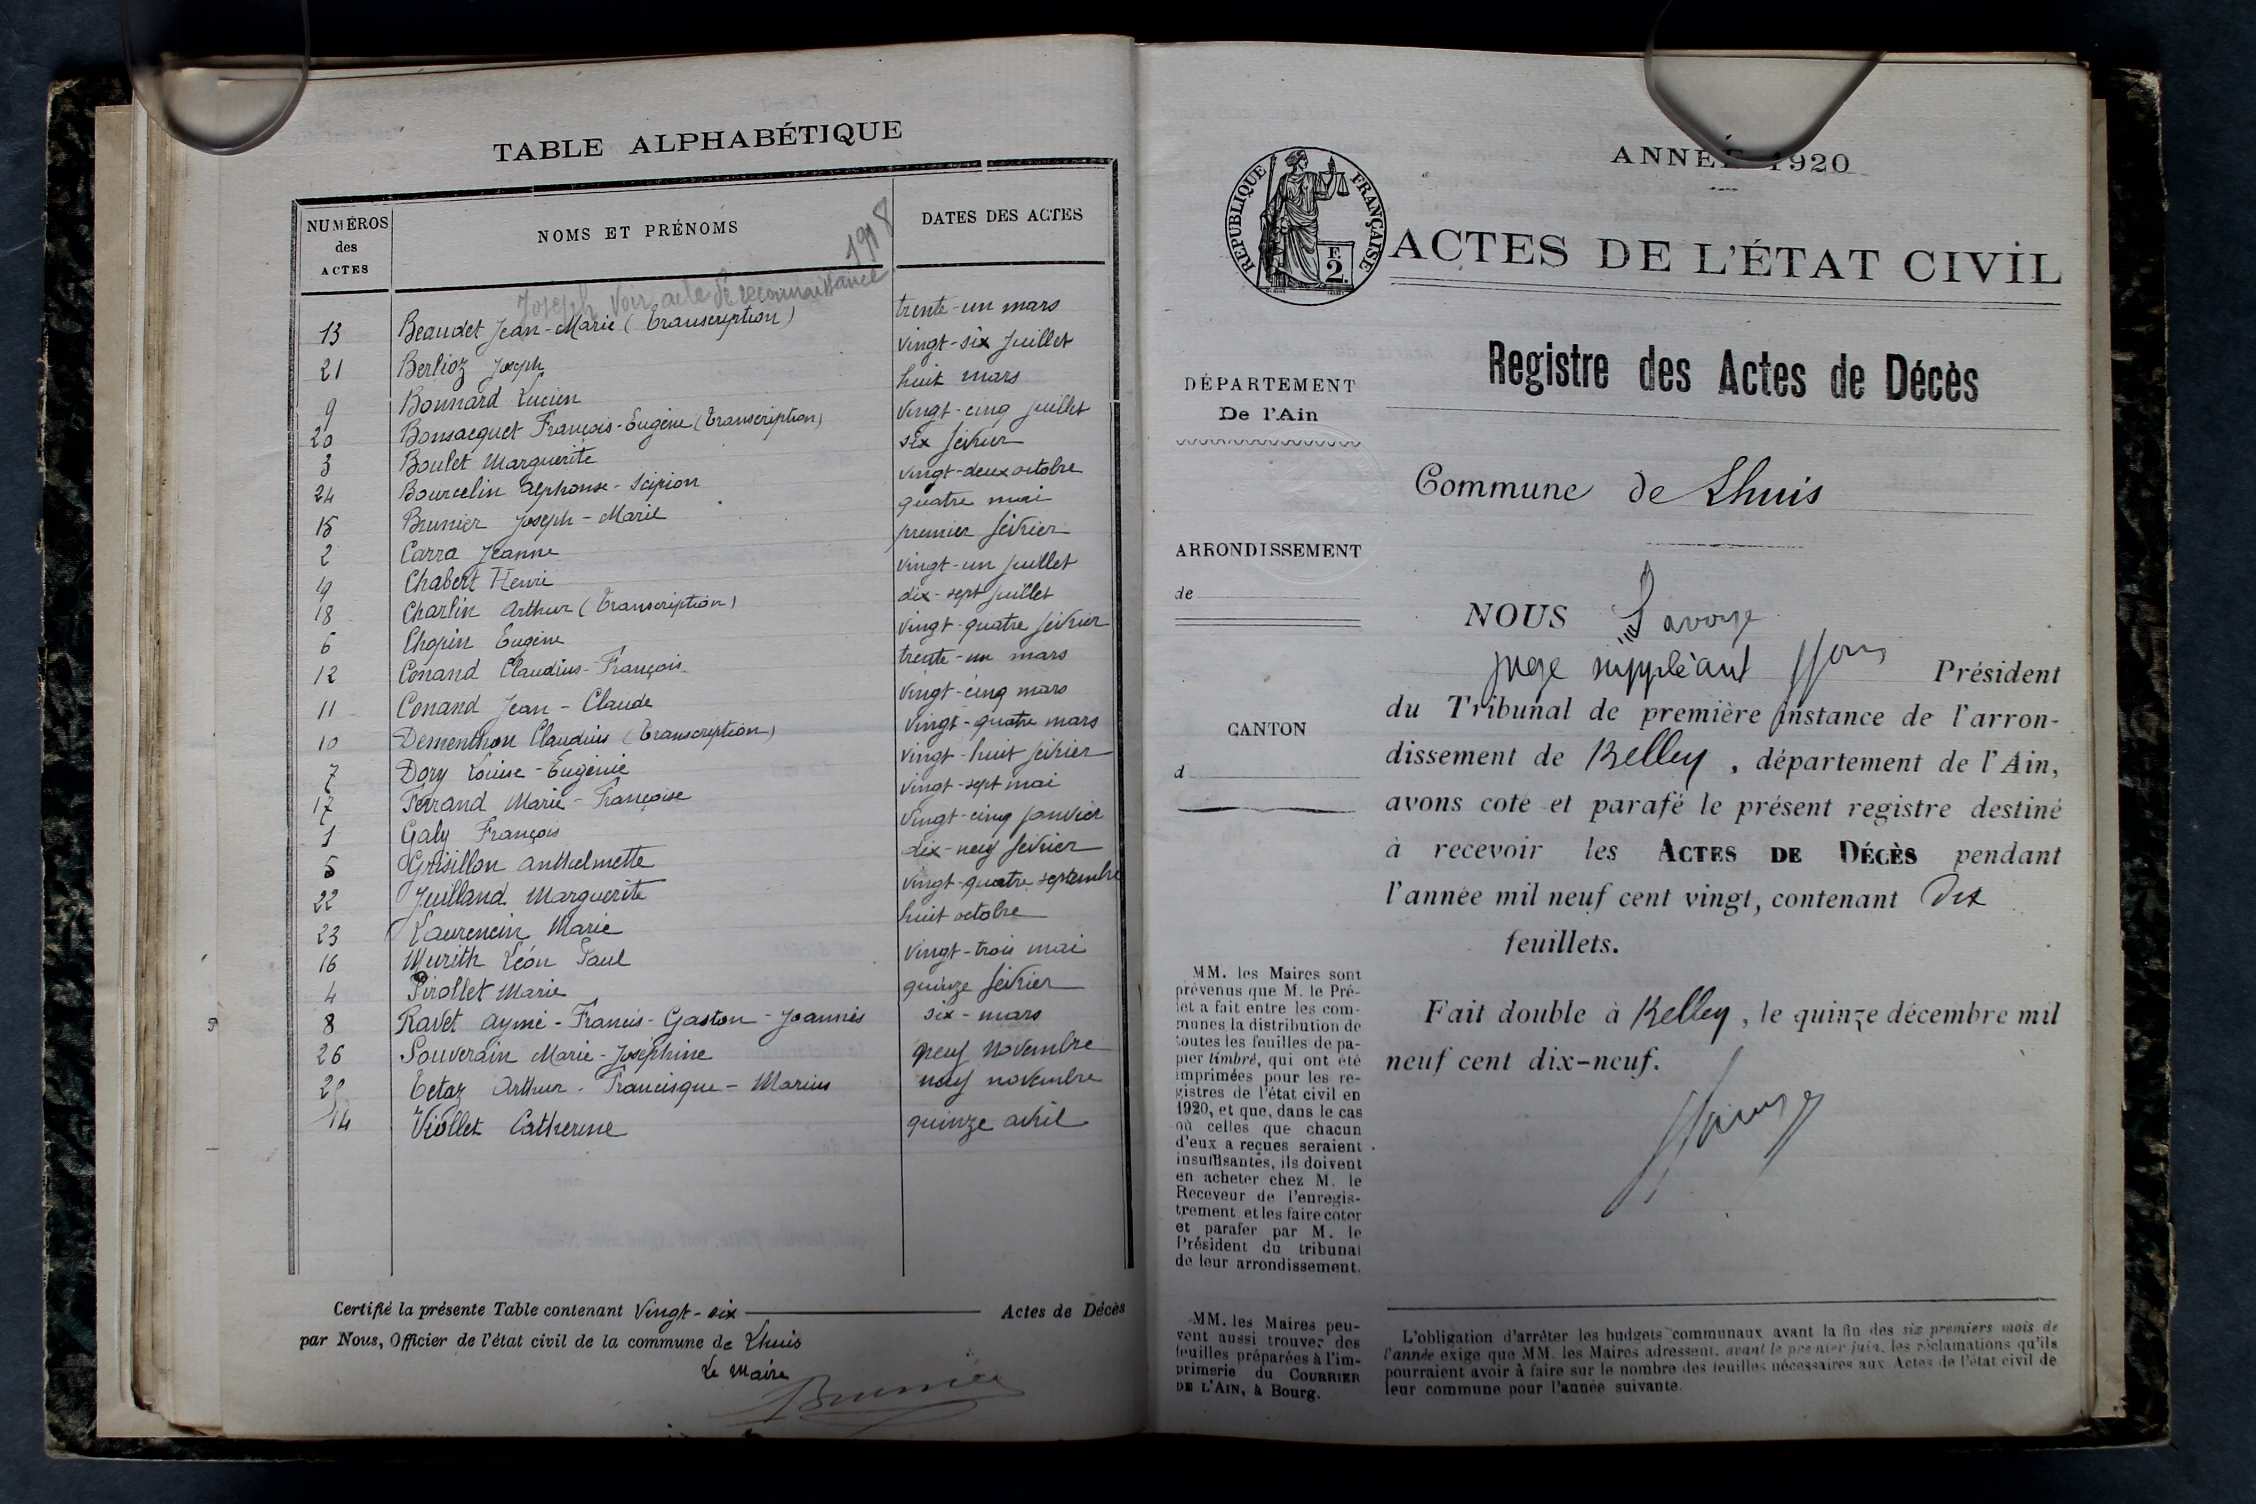 TABLE ALPHABÉTIQUE
NUMÉROS des ACTES
NOMS ET PRÉNOMS
DATES DES ACTES
1918
Joseph Voir acte de reconnaissance
13 Beaudet Jean-Marie (Transcription) trente-un mars
21 Berlioz Joseph vingt-six juillet
9 Bonnard Lucien huit mars
20 Bonsacquet François-Eugène (Transcription) vingt-cinq juillet
3 Boulet Marguerite six février
24 Bourcelin Alphonse-Scipion vingt-deux octobre
15 Brunier Joseph-Marie quatre mai
2 Carra Jeanne premier février
Chabert Henri vingt-un juillet
18 Charlin Arthur (Transcription) dix-sept juillet
6 Chopin Eugène vingt-quatre février
12 Conand Claudius-François trente-un mars
11 Conand Jean-Claude vingt-cinq mars
10 Dementhon Claudius (Transcription) vingt-quatre mars
7 Dory Louise-Eugénie vingt-huit février
17 Ferrand Marie-Françoise vingt-sept mai
1 Galy François vingt-cinq janvier
5 Grisillon Anthelmette dix-neuf février
22 Juilland Marguerite vingt-quatre septembre
23 Laurencin Marie huit octobre
16 Murith Léon Paul vingt-trois mai
4 Pirollet Marie quinze février
8 Ravet Aymé-Francis-Gaston-Joannès six-mars
26 Souverain Marie-Joséphine neuf novembre
Tetaz Arthur-Francisque-Marius neuf novembre
14 Viollet Catherine quinze avril
Certifié la présente Table contenant Vingt-six Actes de Décès
par Nous, Officier de l'état civil de la commune de Lhuis
Le Maire
Brunier
ANNÉE 1920
RÉPUBLIQUE FRANÇAISE
F.
2.
ACTES DE L'ÉTAT CIVIL
Registre des Actes de Décès
DÉPARTEMENT
De l'Ain
Commune de Lhuis
ARRONDISSEMENT
de
CANTON
d
NOUS Savoye
juge suppléant ffons Président
du Tribunal de première instance de l'arron-
dissement de Belley, département de l'Ain,
avons coté et parafé le présent registre destiné
à recevoir les ACTES DE DÉCÈS pendant
l'année mil neuf cent vingt, contenant Dix
feuillets.
Fait double à Belley, le quinze décembre mil
neuf cent dix-neuf.
MM. les Maires sont
prévenus que M. le Pré-
fet a fait entre les com-
munes la distribution de
toutes les feuilles de pa-
pier timbré, qui ont été
imprimées pour les re-
gistres de l'état civil en
1920, et que, dans le cas
où celles que chacun
d'eux a reçues seraient
insuffisantes, ils doivent
en acheter chez M. le
Receveur de l'enregis-
trement et les faire coter
et parafer par M. le
Président du tribunal
de leur arrondissement.
MM. les Maires peu-
vent aussi trouver des
feuilles préparées à l'im-
primerie du COURRIER
DE L'AIN, à Bourg.
L'obligation d'arrêter les budgets communaux avant la fin des six premiers mois de
l'année exige que MM. les Maires adressent, avant le premier juin, les réclamations qu'ils
pourraient avoir à faire sur le nombre des feuilles nécessaires aux Actes de l'état civil de
leur commune pour l'année suivante.